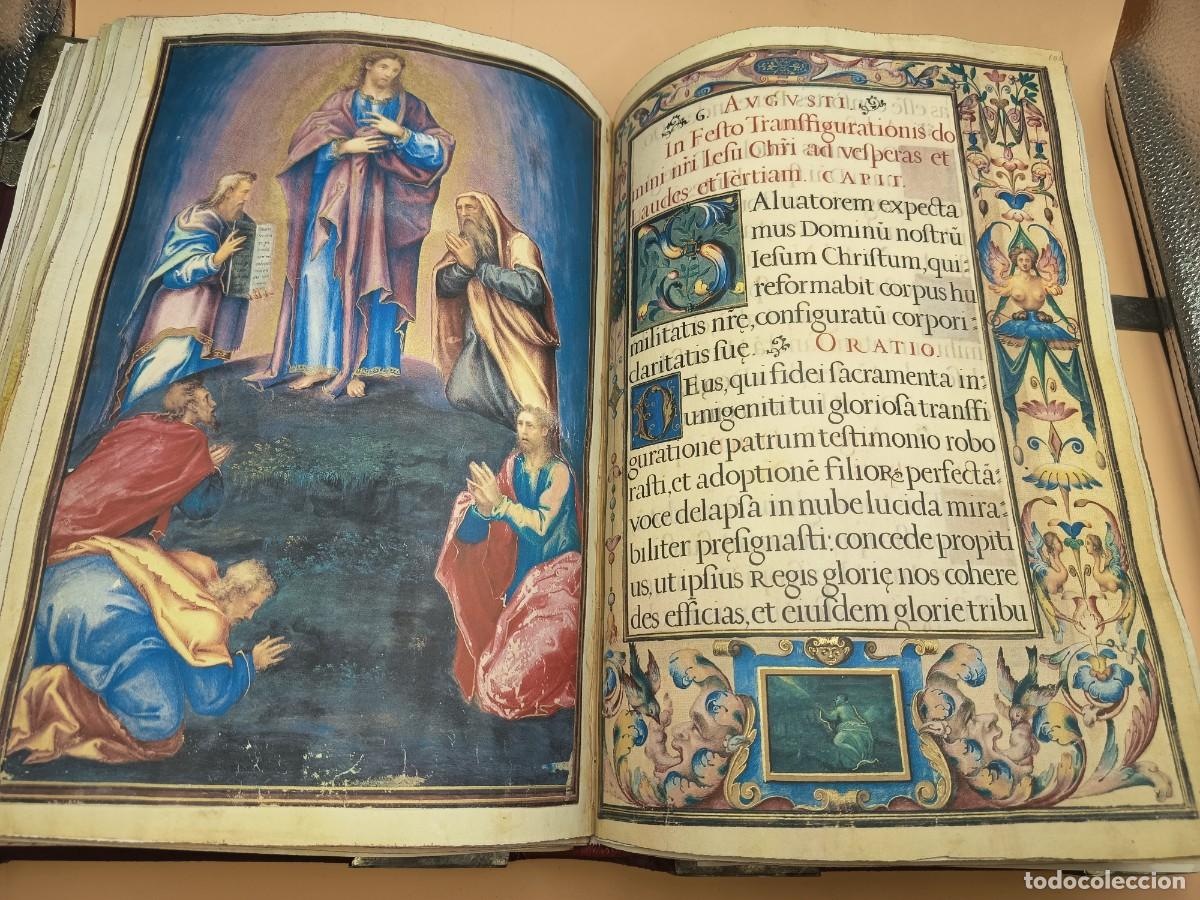 6. AVGVSTI.
In Festo Transffigurationis do
mini nr̄i Iesu Chr̄i ad vesperas et
Laudes et Tertiam. CAPIT.
SAluatorem expecta
mus Dominū nostrū
Iesum Christum, qui
reformabit corpus hu
militatis nrę, configuratū corpori
claritatis suę. ORATIO.
DEus, qui fidei sacramenta in
unigeniti tui gloriosa transffi
guratione patrum testimonio robo
rasti, et adoptionē filioR perfectā
voce delapsa in nube lucida mira
biliter pręsignasti: concede propiti
us, ut ipsius Regis glorię nos cohere
des efficias, et eiusdem glorie tribu
todocoleccion